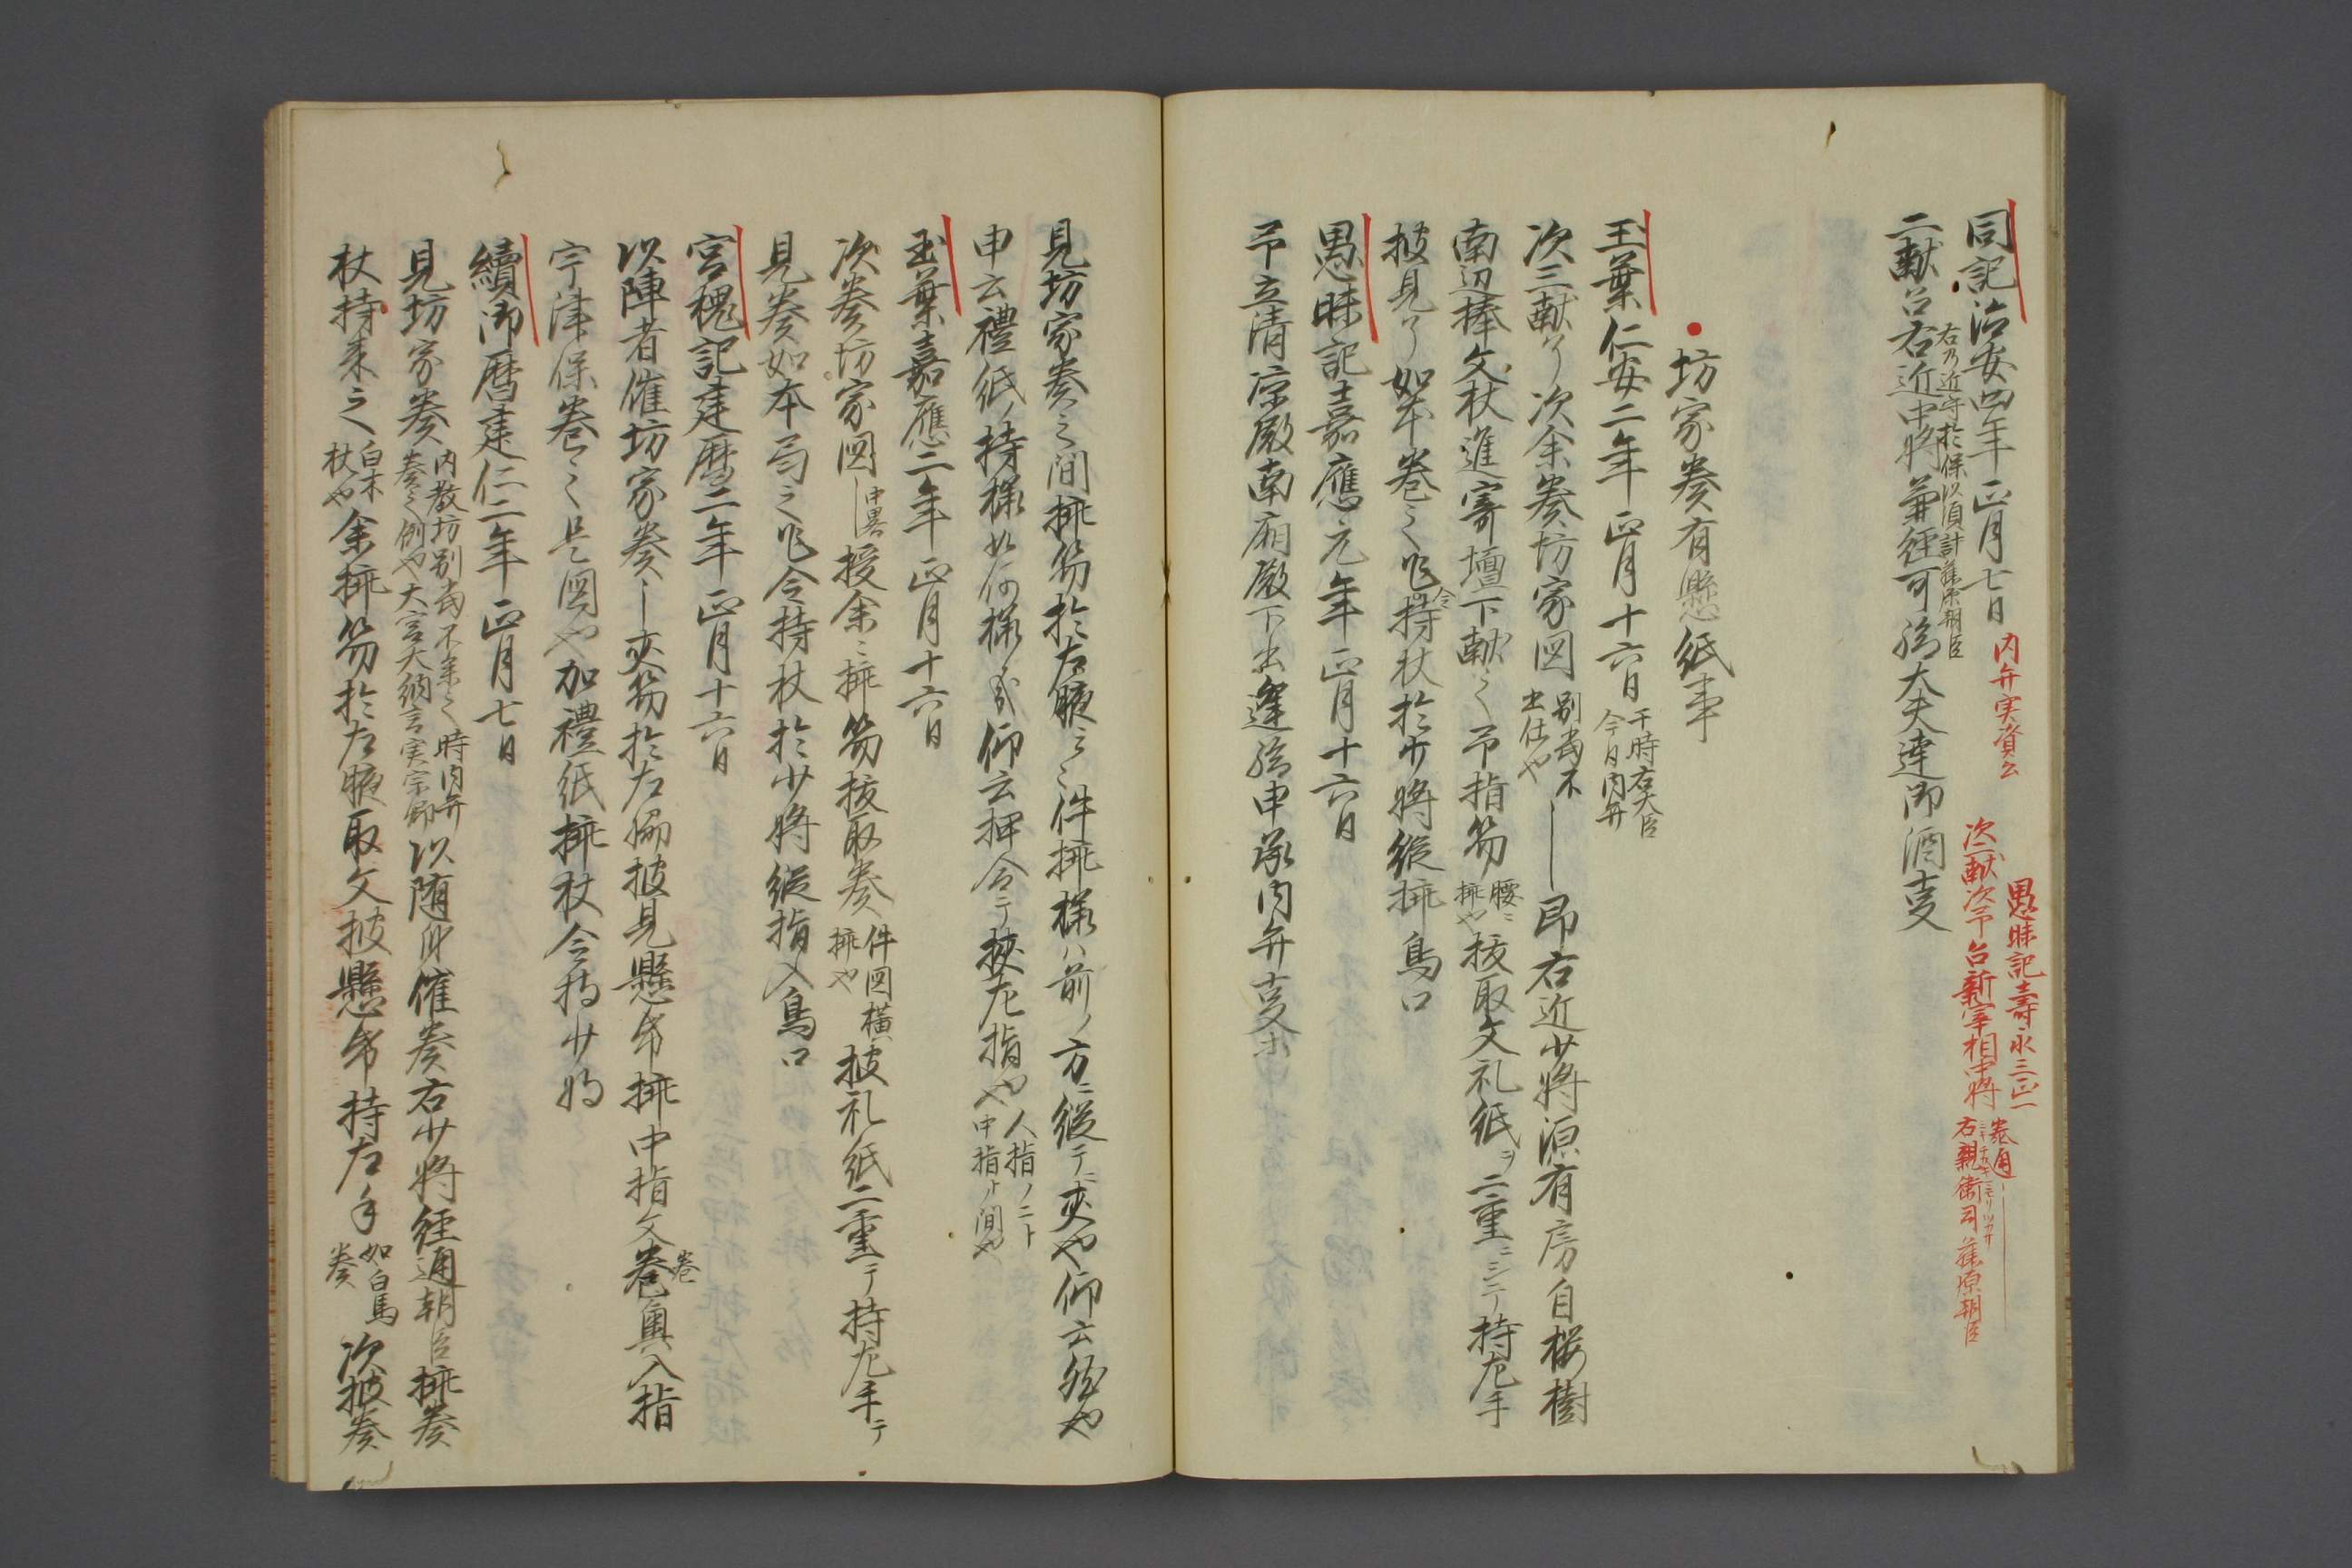 同記治安四年正月七日 内弁実資公
愚昧記壽永三正一
次一献次予召新宰相中将
右親衛司藤原朝臣
二献召右近中将兼経可給大夫達御酒支
坊家奏有懸紙事
玉葉仁安二年正月十六日 于時右大臣 今日内弁
次三献了次余奏坊家図 別当不 出仕也 即右近少将源有房自桜樹
南辺捧文杖進寄壇下献之予指笏 腰ニ 挿也 抜取文礼紙ヲ二重ニシテ持左手
披見了如本巻之令持杖於少将縦挿鳥口
愚昧記嘉應元年正月十六日
予立清凉殿南廂殿下出逢給申承内弁支
見坊家奏之間挿笏於左腋之件挿様ハ前ノ方ニ縦テニ夾也仰云能也
申云禮紙ノ持様如何様哉仰云押合テ挟左指也 人指ノニト 中指ノ間也
玉葉嘉應二年正月十六日
次奏坊家図 中畧 授余ミ挿笏抜取奏 件図横 挿也 披礼紙二重テ持左手テ
見奏如本 令持杖於少将縦指入鳥口
宮槐記建暦二年正月十六日
以陣者催坊家奏 夾笏於左 披見懸帋挿中指文巻奥入指
宇津保巻之是図也加禮紙挿杖令持少将
續御暦建仁二年正月七日
見坊家奏 内教坊別当不参之時内弁 奏之例也大宮大納言実宗卿 以随身催奏右少将経通朝臣挿奏
杖持来之 白木 杖也 余挿笏於左腋取文披懸帋持左手 如白馬 奏 次披奏